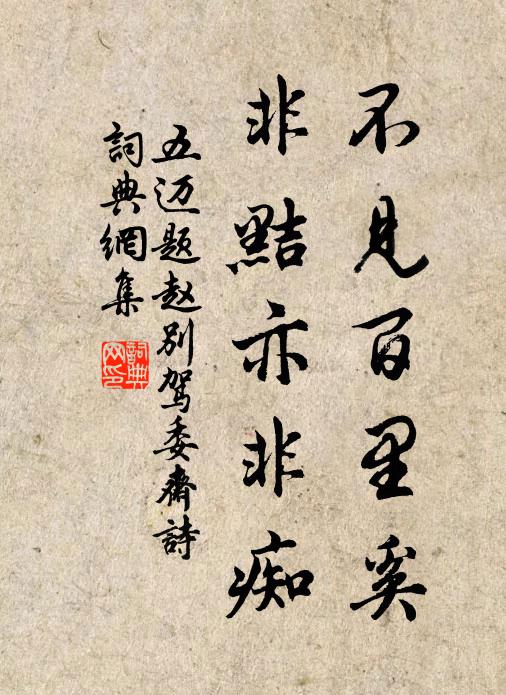 不見百里奚
非黠亦非痴
五迈题赵别驾委斋詩
詞典網集
詞典網印